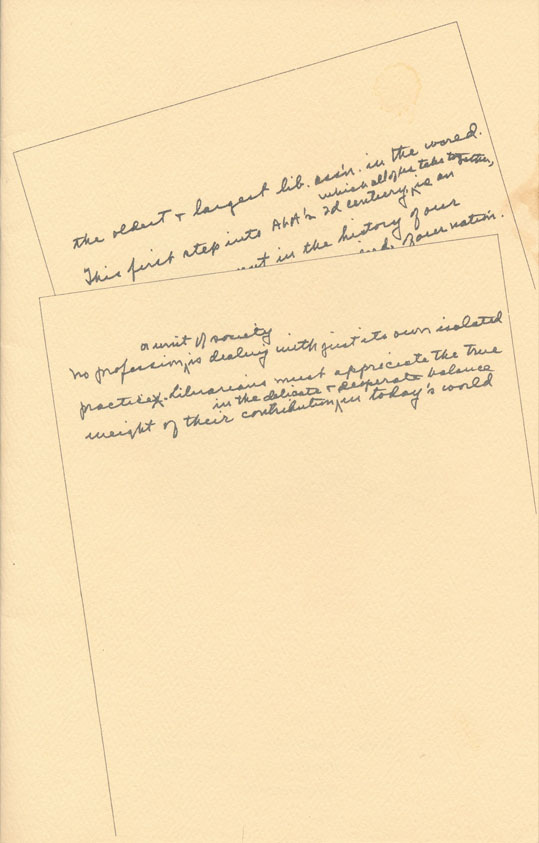 the oldest & largest lib. ass'n. in the world.
which all of us take together,
This first step into ALA's 2d century, is an
in the history of our
of our nation.
or unit of society
no profession, is dealing with just its own isolated
practices. Librarians must appreciate the true
in the delicate & desperate balance
weight of their contribution, in today's world